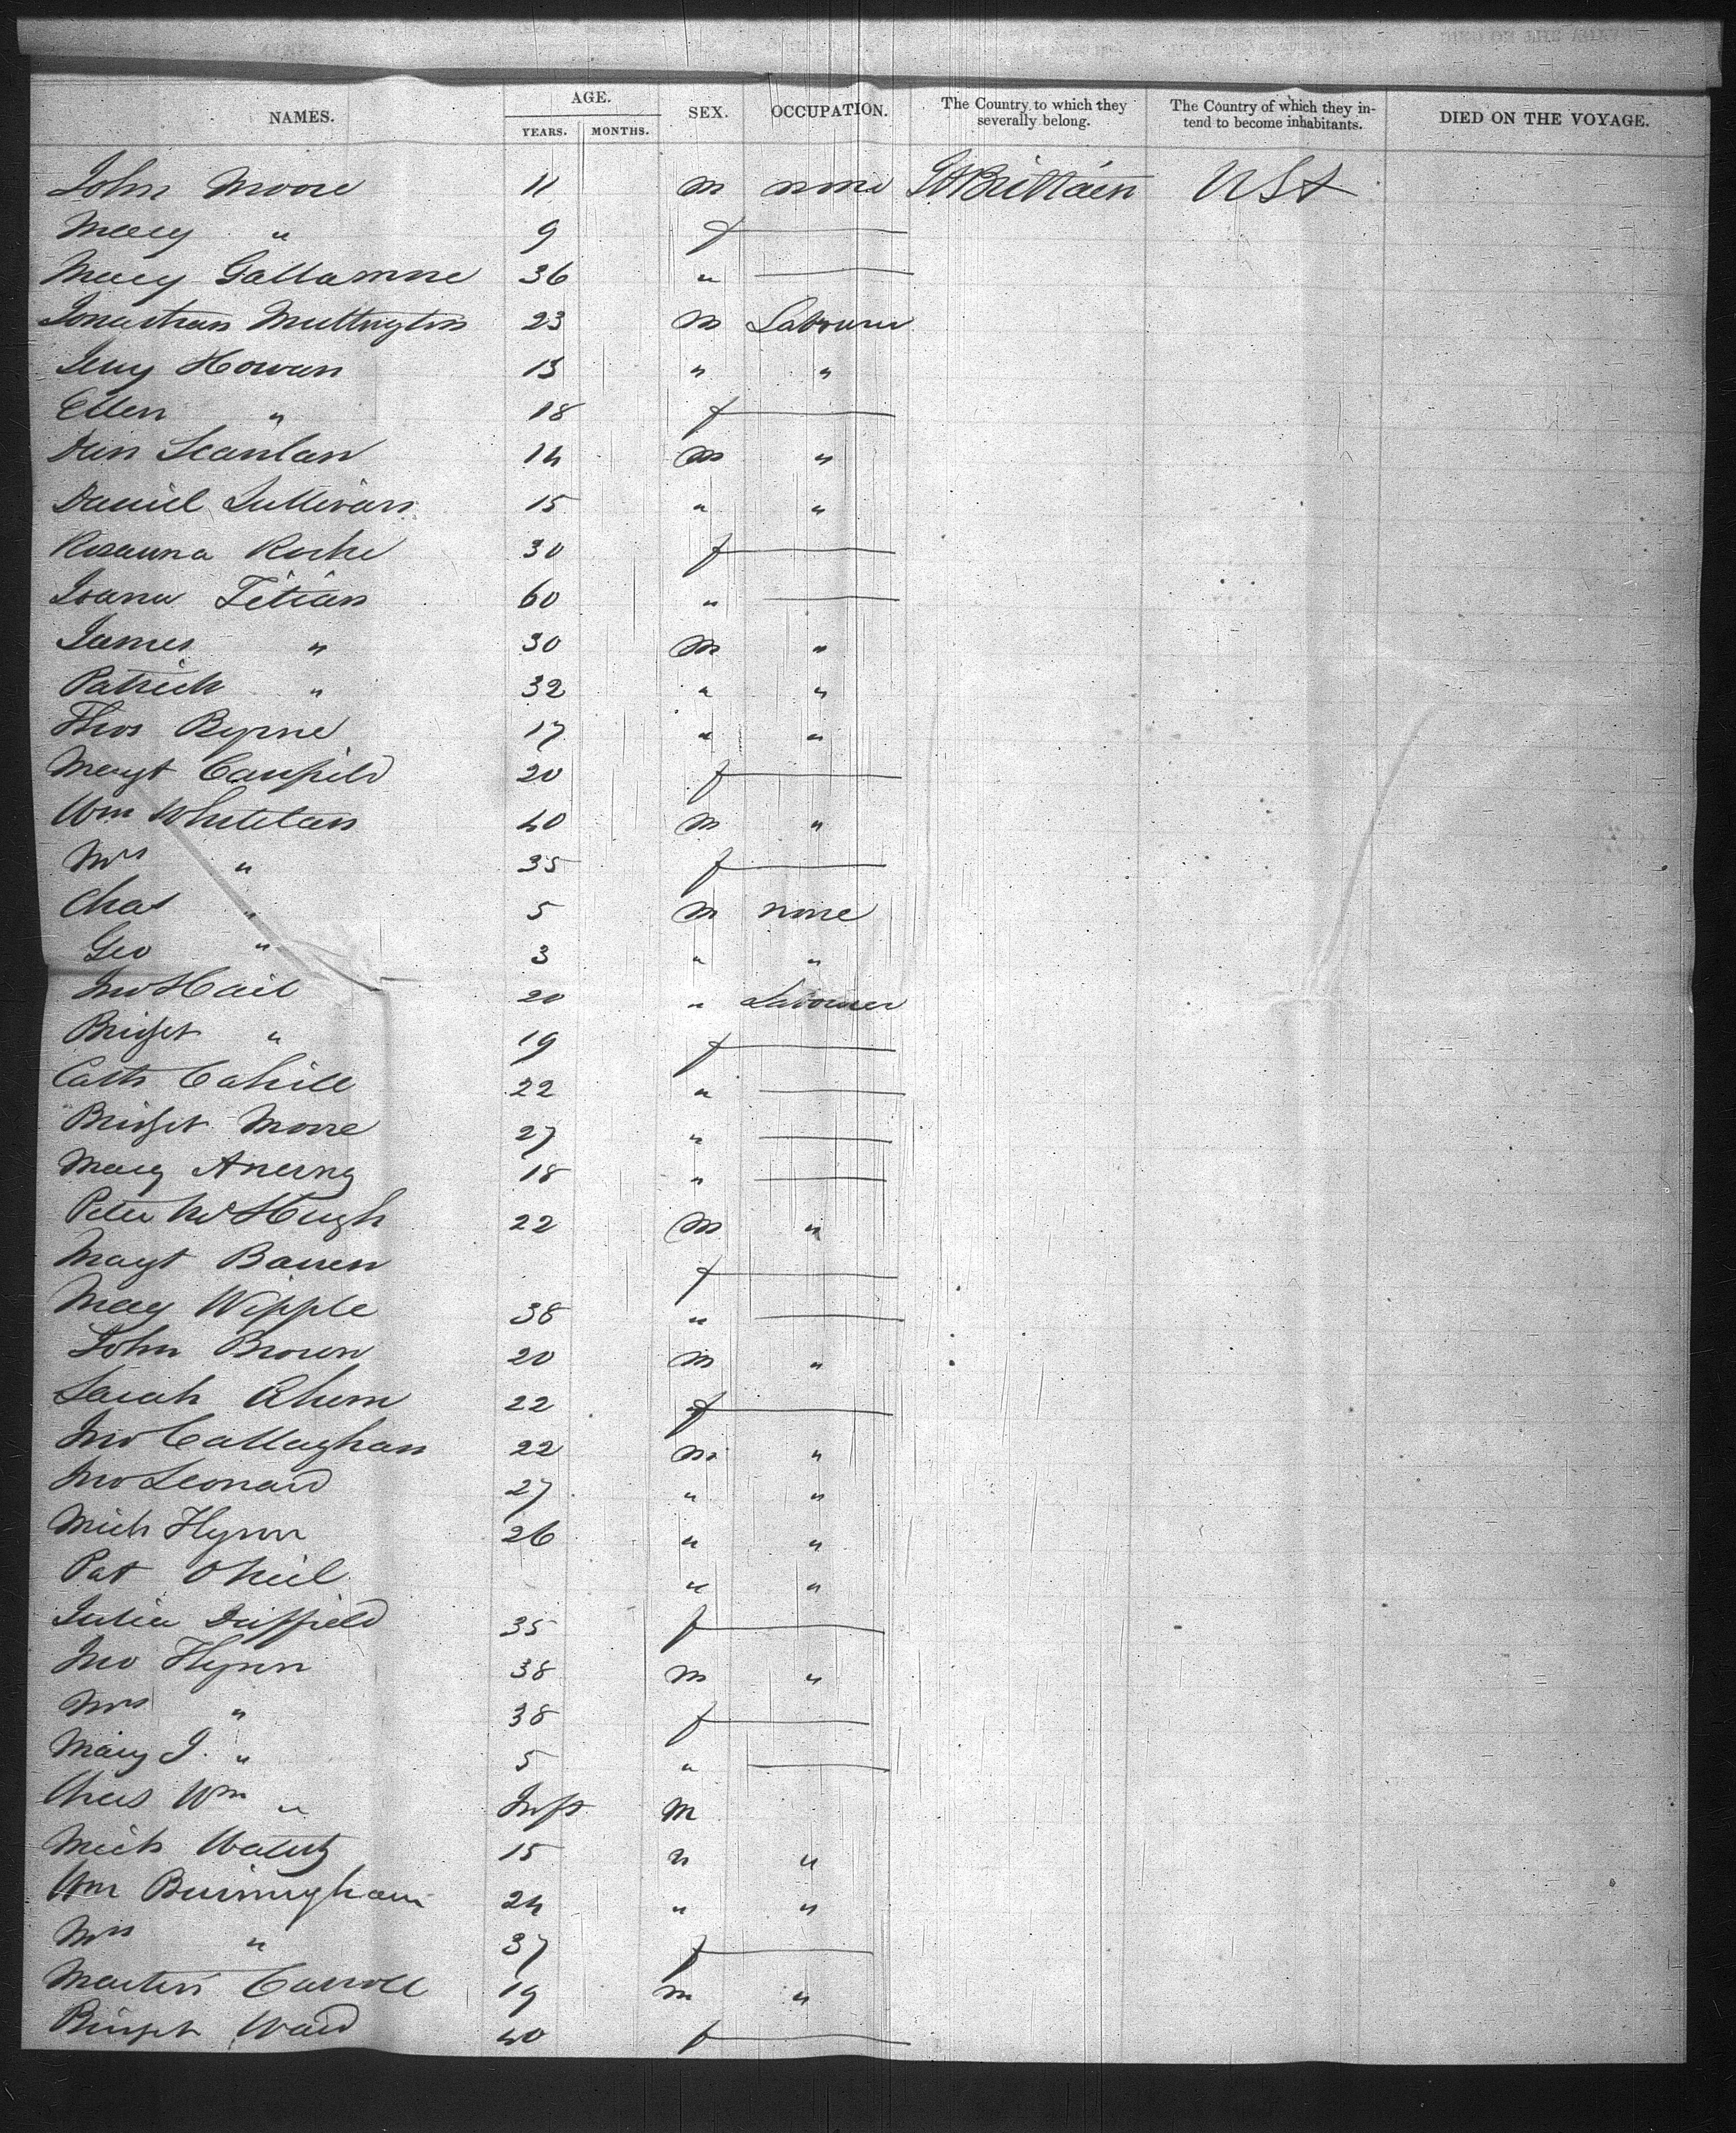 NAMES. AGE. SEX. OCCUPATION. The Country to which they severally belong. The Country of which they intend to become inhabitants. DIED ON THE VOYAGE.
YEARS. MONTHS.
John Moore 11 m none Gt Brittain USA
Mary " 9 f
Mary 36 "
Jonathan 23 m Labourer
Howan 13 " "
Ellen " 18 f
Scanlan 14 m "
Daniel Sullivan 15 " "
Rosanna Roche 30 f
60 "
James " 30 m "
Patrick " 32 " "
Thos Byrne 17 " "
Margt Canfield 20 f
Wm 40 m "
Mrs " 35 f
Chas " 5 m none
Geo " 3 " "
Jno Hail 20 " Labourer
Bridget " 19 f
Cath Cahill 22 "
Bridget Moore 27 "
Mary 18 "
Peter McHugh 22 m "
Margt f
Mary Wipple 38 "
John Brown 20 m "
Sarah 22 f
Jno Callaghan 22 m "
Jno Leonard 27 " "
Mich Flynn 26 " "
Pat ONeil " "
Julia Duffield 35 f
Jno Flynn 38 m "
Mrs " 38 f
Mary J. " 5 "
Chas Wm " Inft m
Mich 15 " "
Wm Burmingham 24 " "
Mrs " 37 f
Martin Carroll 19 m "
Bridget Ward 40 f